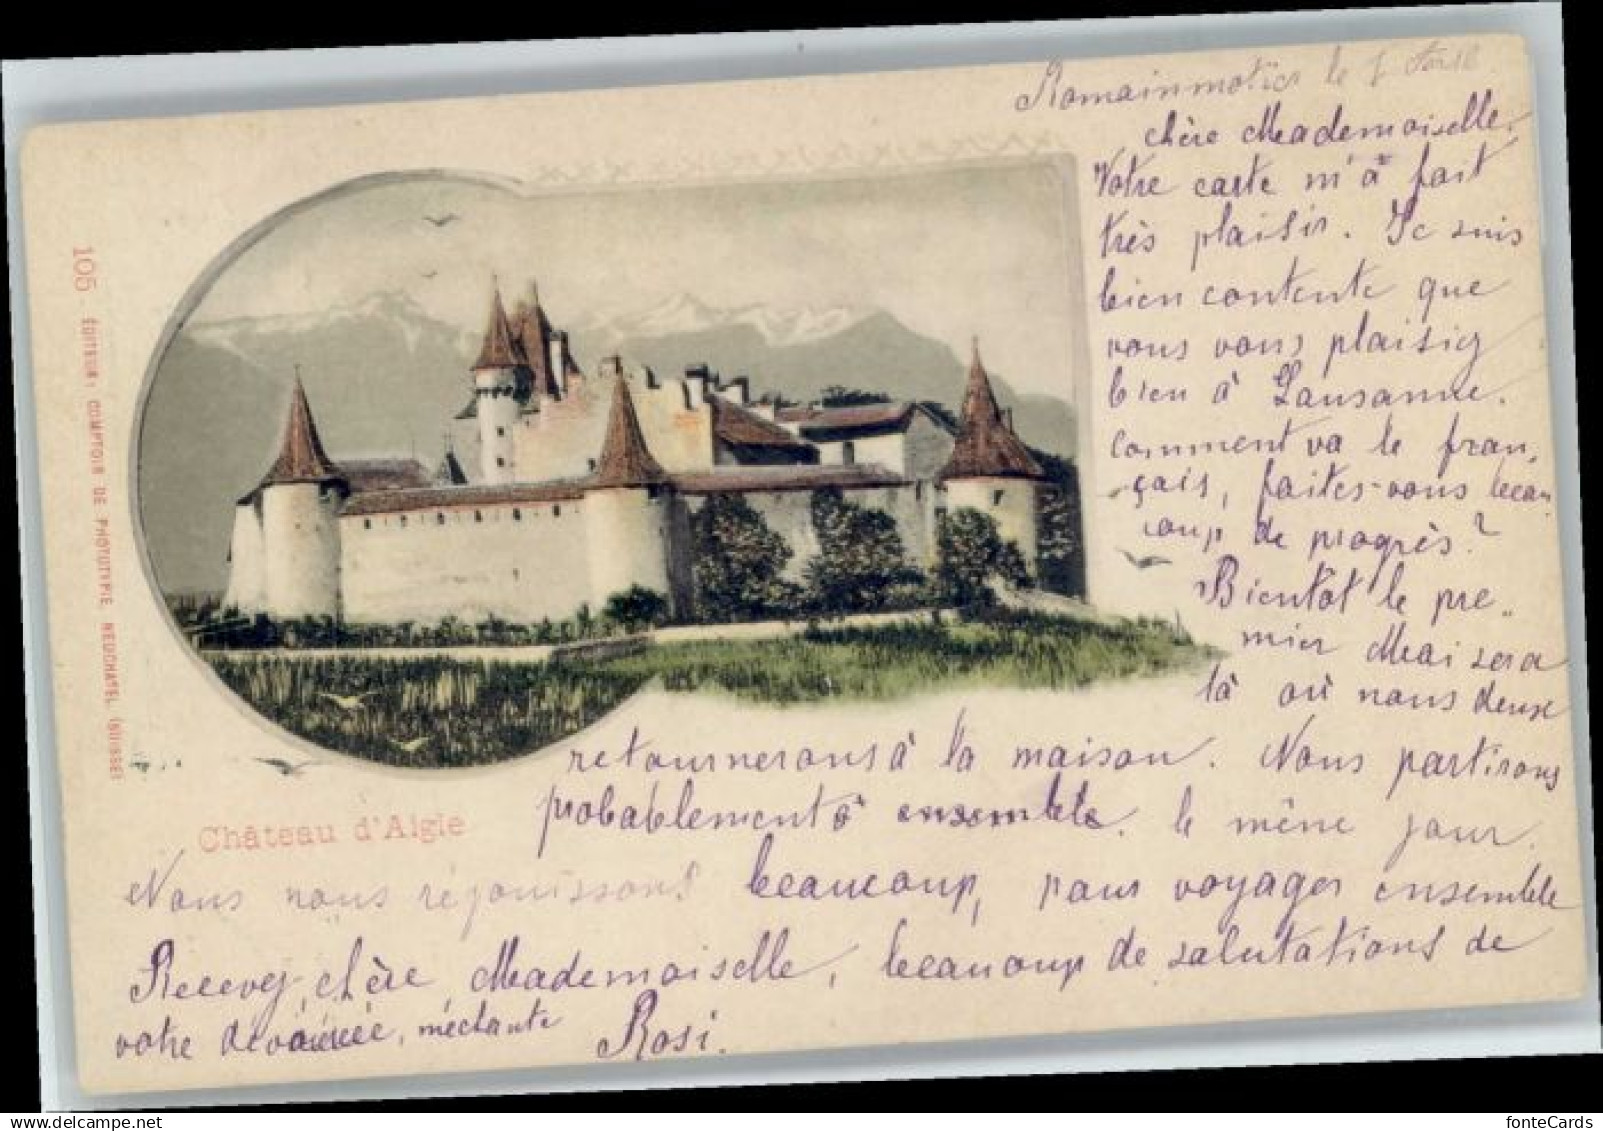 Romainmotier le 1
chère Mademoiselle.
Votre carte m'a fait
très plaisir. Je suis
bien contente que
vous vous plaisiez
bien à Lausanne.
comment va le fran,
çais, faites-vous beau,
coup de progrès?
Bientôt le pre..
mier Mai sera
là où nous deux
retournerons à la maison. Nous partirons
probablements ensemble. le même jour.
Nous nous réjouissons beaucoup, pour voyager ensemble
Recevez, chère Mademoiselle, beaucoup de salutations de
votre dévouée, méchante Rosi.
Château d'Aigle
105 - ÉDITEUR, COMPTOIR DE PHOTOTYPIE NEUCHATEL (SUISSE)
fonteCards